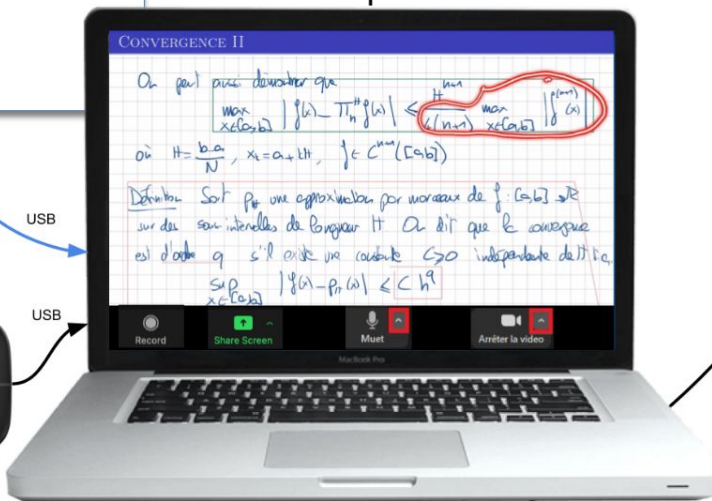 CONVERGENCE II
On peut aussi démontrer que
max x∈[a,b] |f(x) - Π_n^H f(x)| ≤ H^{n+1} / 4(n+1) max x∈[a,b] |f^{(n+1)}(x)|
où H = b-a / N, x_k = a + kH, f ∈ C^{n+1}([a,b])
Définition Soit p_H une approximation par morceaux de f : [a,b] → R
sur des sous intervalles de longueur H On dit que la convergence
est d'ordre q s'il existe une constante C>0 indépendante de H t.q.
sup x∈[a,b] |f(x) - p_H(x)| ≤ C h^q
USB
USB
Record
Share Screen
Muet
Arrêter la video
MacBook Pro